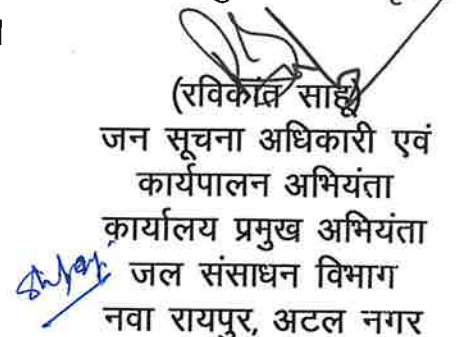 (रविकांत साहू)
जन सूचना अधिकारी एवं
कार्यपालन अभियंता
कार्यालय प्रमुख अभियंता
जल संसाधन विभाग
नवा रायपुर, अटल नगर